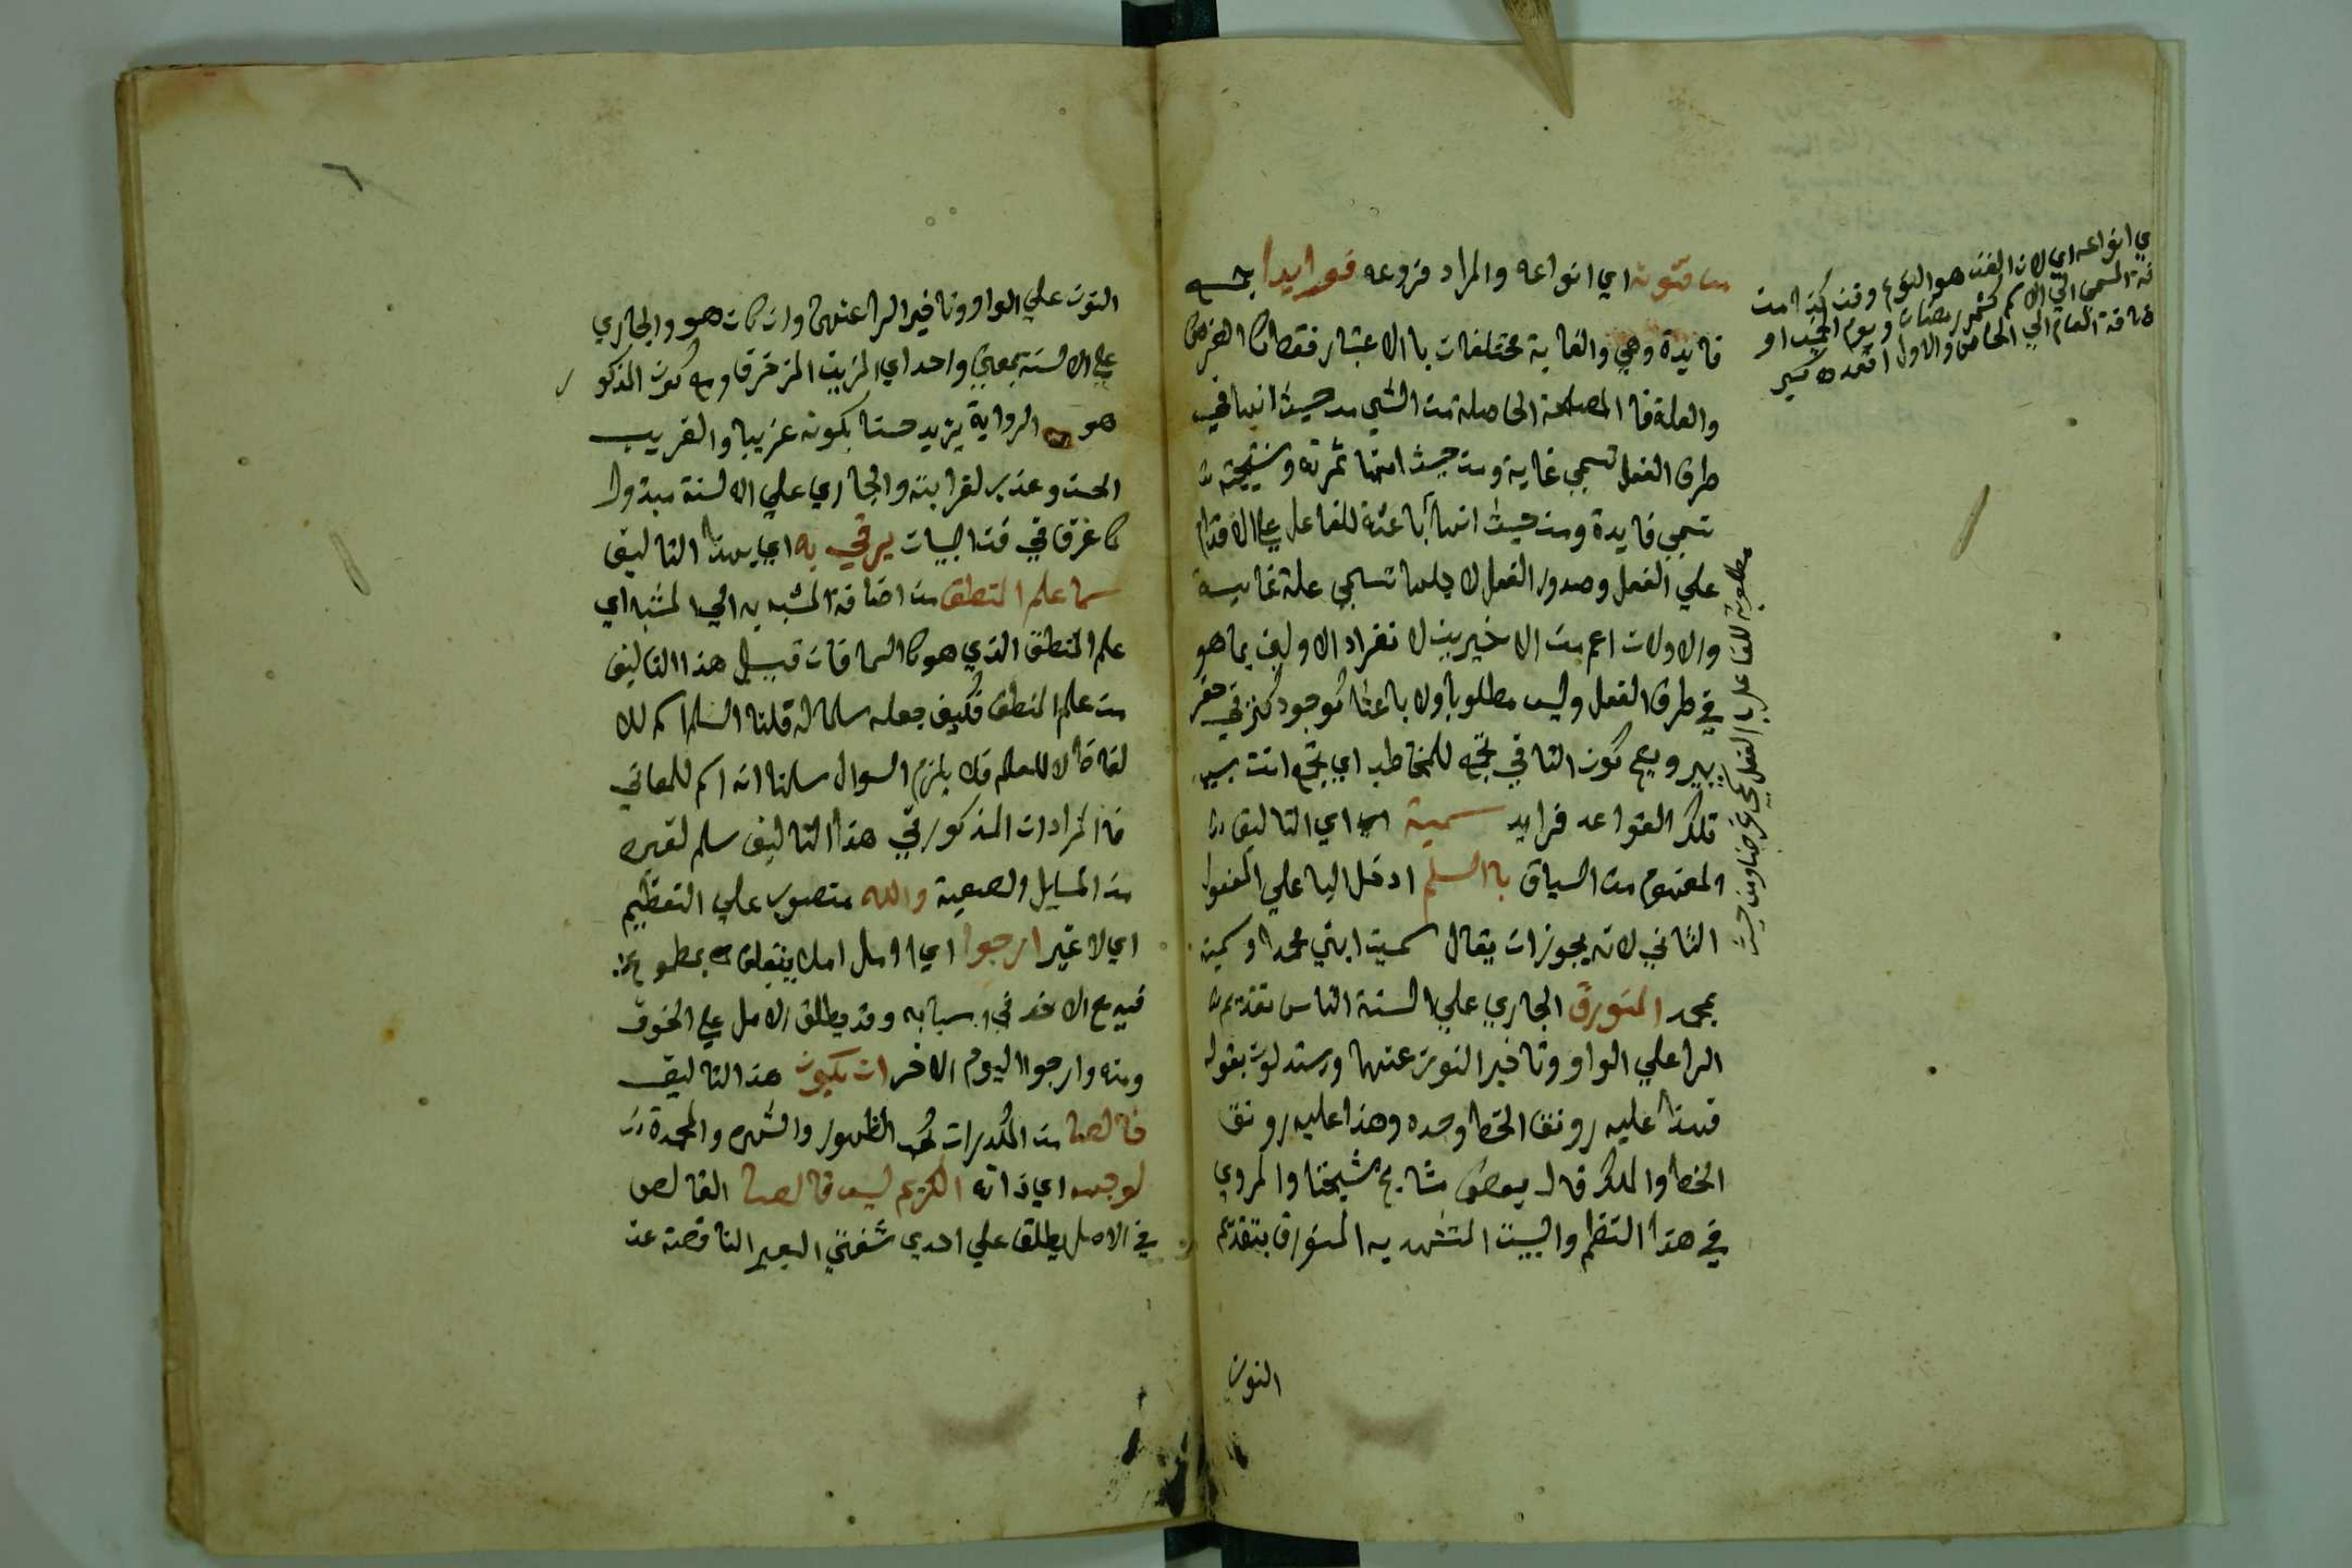 من فنونه اي انواعه والمراد فروعه فوايدا جمع
فايدة وهي والغاية مختلفات باالاعتبار فقط كالغرض
والعلة فا المصلحة الحاصلة من الشي من حيث انها في
طرف الفعل تسمي غاية ومن حيث انها ثمرته ونتيجته
تسمي فايدة ومن حيث انها باعثة للفاعل علي الاقدام
علي الفعل وصدور الفعل لاجلها تسمي علة غايية
والاولان اعم من الاخيرين لانفراد الاولين بما هو
في طرف الفعل وليس مطلوبا ولا باعثا كوجود كنز في حفر
بير ويصح كون التا في تجمع للمخاطب اي تجمع انت بسبب
تلك القواعد فرايد سميته اي التاليف
المفهوم من السياق باالسلم ادخل البا علي المفعول
الثاني لانه يجوز ان يقال سميت ابني محمدا وسميته
بمحمد المنورق الجاري علي السنة الناس تقديم
الرا علي الواو وتاخير النون عنها ويستدلون بقوله
فهذا عليه رونق الخط وحده وهذا عليه رونق
الخط والملك قال بعض مشايخ شيخنا والمروي
في هذا النظم والبيت المتشهد به المنورق بتقديم
النون
ي انواعه اي لان الفن هو النوع
المسمي الي الاسم كشهر رمضان ويوم
العام الي الخاص والاول اقعد
مطلوبة للفاعل الفعل تسمي غرضا ومن حيث
النون علي الواو وتاخير الرا عنهما وان كان هو والجاري
علي الالسنة بمعني واحد اي المزين المزخرف وجه كون المذكور
هو الرواية يزيد حسنا بكونه غريبا والغريب
الحسن وعذب لغرابته والجاري علي الالسنة مبذول
كما عرف في فن البيان يرقي به اي بهذا التاليف
سما علم المنطق من اضافة المشبه به الي المشبه اي
علم المنطق الذي هو كالسما فان قيل هذا التاليف
من علم المنطق فكيف جعله سلما له قلنا السلم اسم للا
لفاظ لا للعلم فلا يلزم السوال سلمنا انه اسم للمعاني
فا المرادان المذكور في هذا التاليف سلم لغيره
من المسايل الصعبة والله منصوب علي التعظيم
اي لا غير ارجوا اي ااومل املا يتعلق بمطموع
فيه مع الاخذ في اسبابه وقد يطلق الامل علي الخوف
ومنه وارجوا اليوم الاخر ان يكون هذا التاليف
خالصا من المكدرات كحب الظهور والشهره والمحمدة
لوجهه اي ذاته الكريم ليس قالصا القالص
في الاصل يطلق علي احدي شفتي البعير الناقصة عن